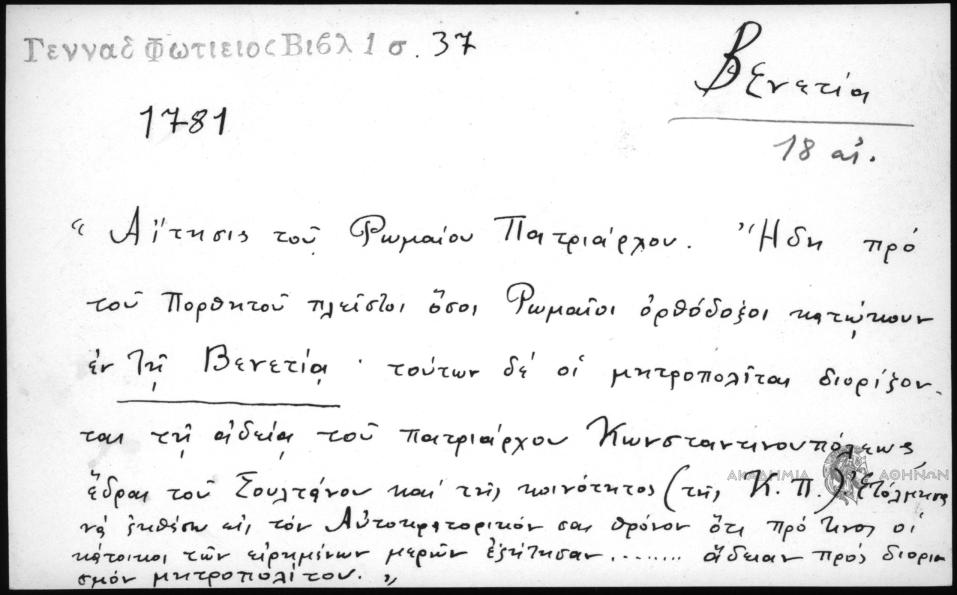 Γενναδ Φωτιειος Βιβλ 1 σ. 37
Βενετία
1781
18 αἰ.
“Αἴτησις τοῦ Ρωμαίου Πατριάρχου. Ἤδη πρό
τοῦ Πορθητοῦ πλεῖστοι ὅσοι Ρωμαῖοι ὀρθόδοξοι κατῴκουν
ἐν τῇ Βενετίᾳ · τούτων δέ οἱ μητροπολῖται διορίζον-
ται τῇ ἀδείᾳ τοῦ πατριάρχου Κωνσταντινουπόλεως
ἕδραι τοῦ Σουλτάνου καί τῆς κοινότητος (τῆς Κ. Π.) Ἐτόλμησα
ΑΚΑΔΗΜΙΑ ΑΘΗΝΩΝ
νά ἐκθέσω εἰς τόν Αὐτοκρατορικόν σας θρόνον ὅτι πρό τινος οἱ
κάτοικοι τῶν εἰρημένων μερῶν ἐζήτησαν........ ἄδειαν πρός διορι
σμόν μητροπολίτου.”